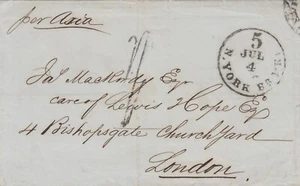 per Asia
5
JUL
4
N. YORK BR. PKT
Jas. MacKordy Esqr
care of Lewis & Hope Esqr
4 Bishopsgate Church Yard
London.